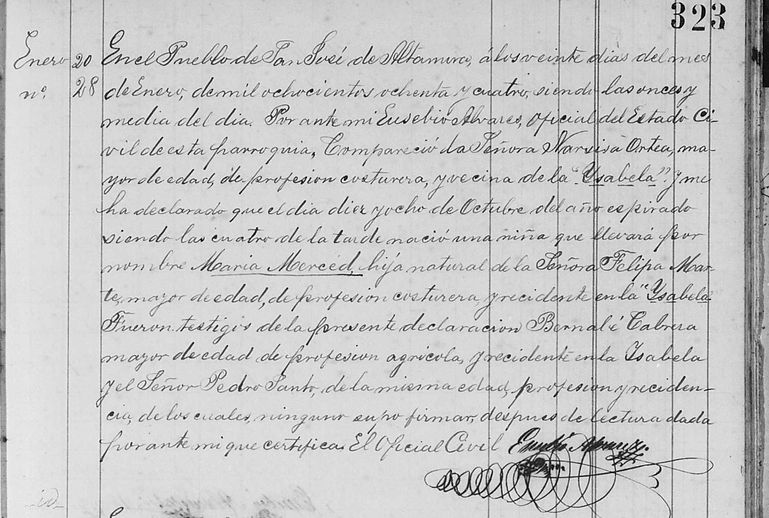 323
Enero 20 En el Pueblo de San José de Altamira, á los veinte dias del mes
nº. 28 de Enero, de mil ochocientos ochenta y cuatro, siendo las onces y
media del dia. Por ante mi Eusebio Alvares, Oficial del Estado Ci-
vil de esta parroquia, Compareció la Señora Narsisa Ortea, ma-
yor de edad, de profesion costurera, y vecina de la "Ysabela". Y me
ha declarado que el dia diez y ocho de Octubre del año espirado
siendo las cuatro de la tarde nació una niña que llevará por
nombre Maria Merced, hija natural de la Señora Felipa Mar-
te, mayor de edad, de profesion costurera, y recidente en la "Ysabela"
Fueron testigos de la presente declaracion Bernabé Cabrera
mayor de edad de profesion agricola, y recidente en la Ysabela
y el Señor Pedro Santo, de la misma edad, profesion y reciden-
cia, de los cuales, ninguno supo firmar, despues de lectura dada
por ante mi que certifica. El Oficial Civil